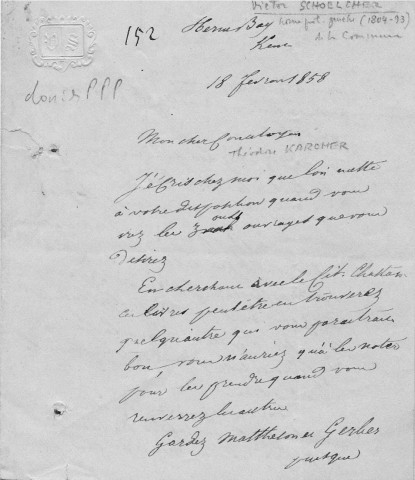 Victor SCHOELCHER
homme pol. gauche (1804-93)
de la Commune
152
Herne Bay
Kent
18 fevrier 1858
don de PPP
Mon cher Concitoyen
Théodore KARCHER
J'écris chez moi que l'on mette
à votre disposition quand vous
les 3 ouvrages que vous
desirez
En cherchant avec le Cit. Chatain
ces livres peut être en trouverez
quelqu'autre que vous paraitrait
bon, vous n'auriez qu'à les noter
pour les prendre quand vous
renverrez les autres
Gardez Mattheson et Gerber
puisque